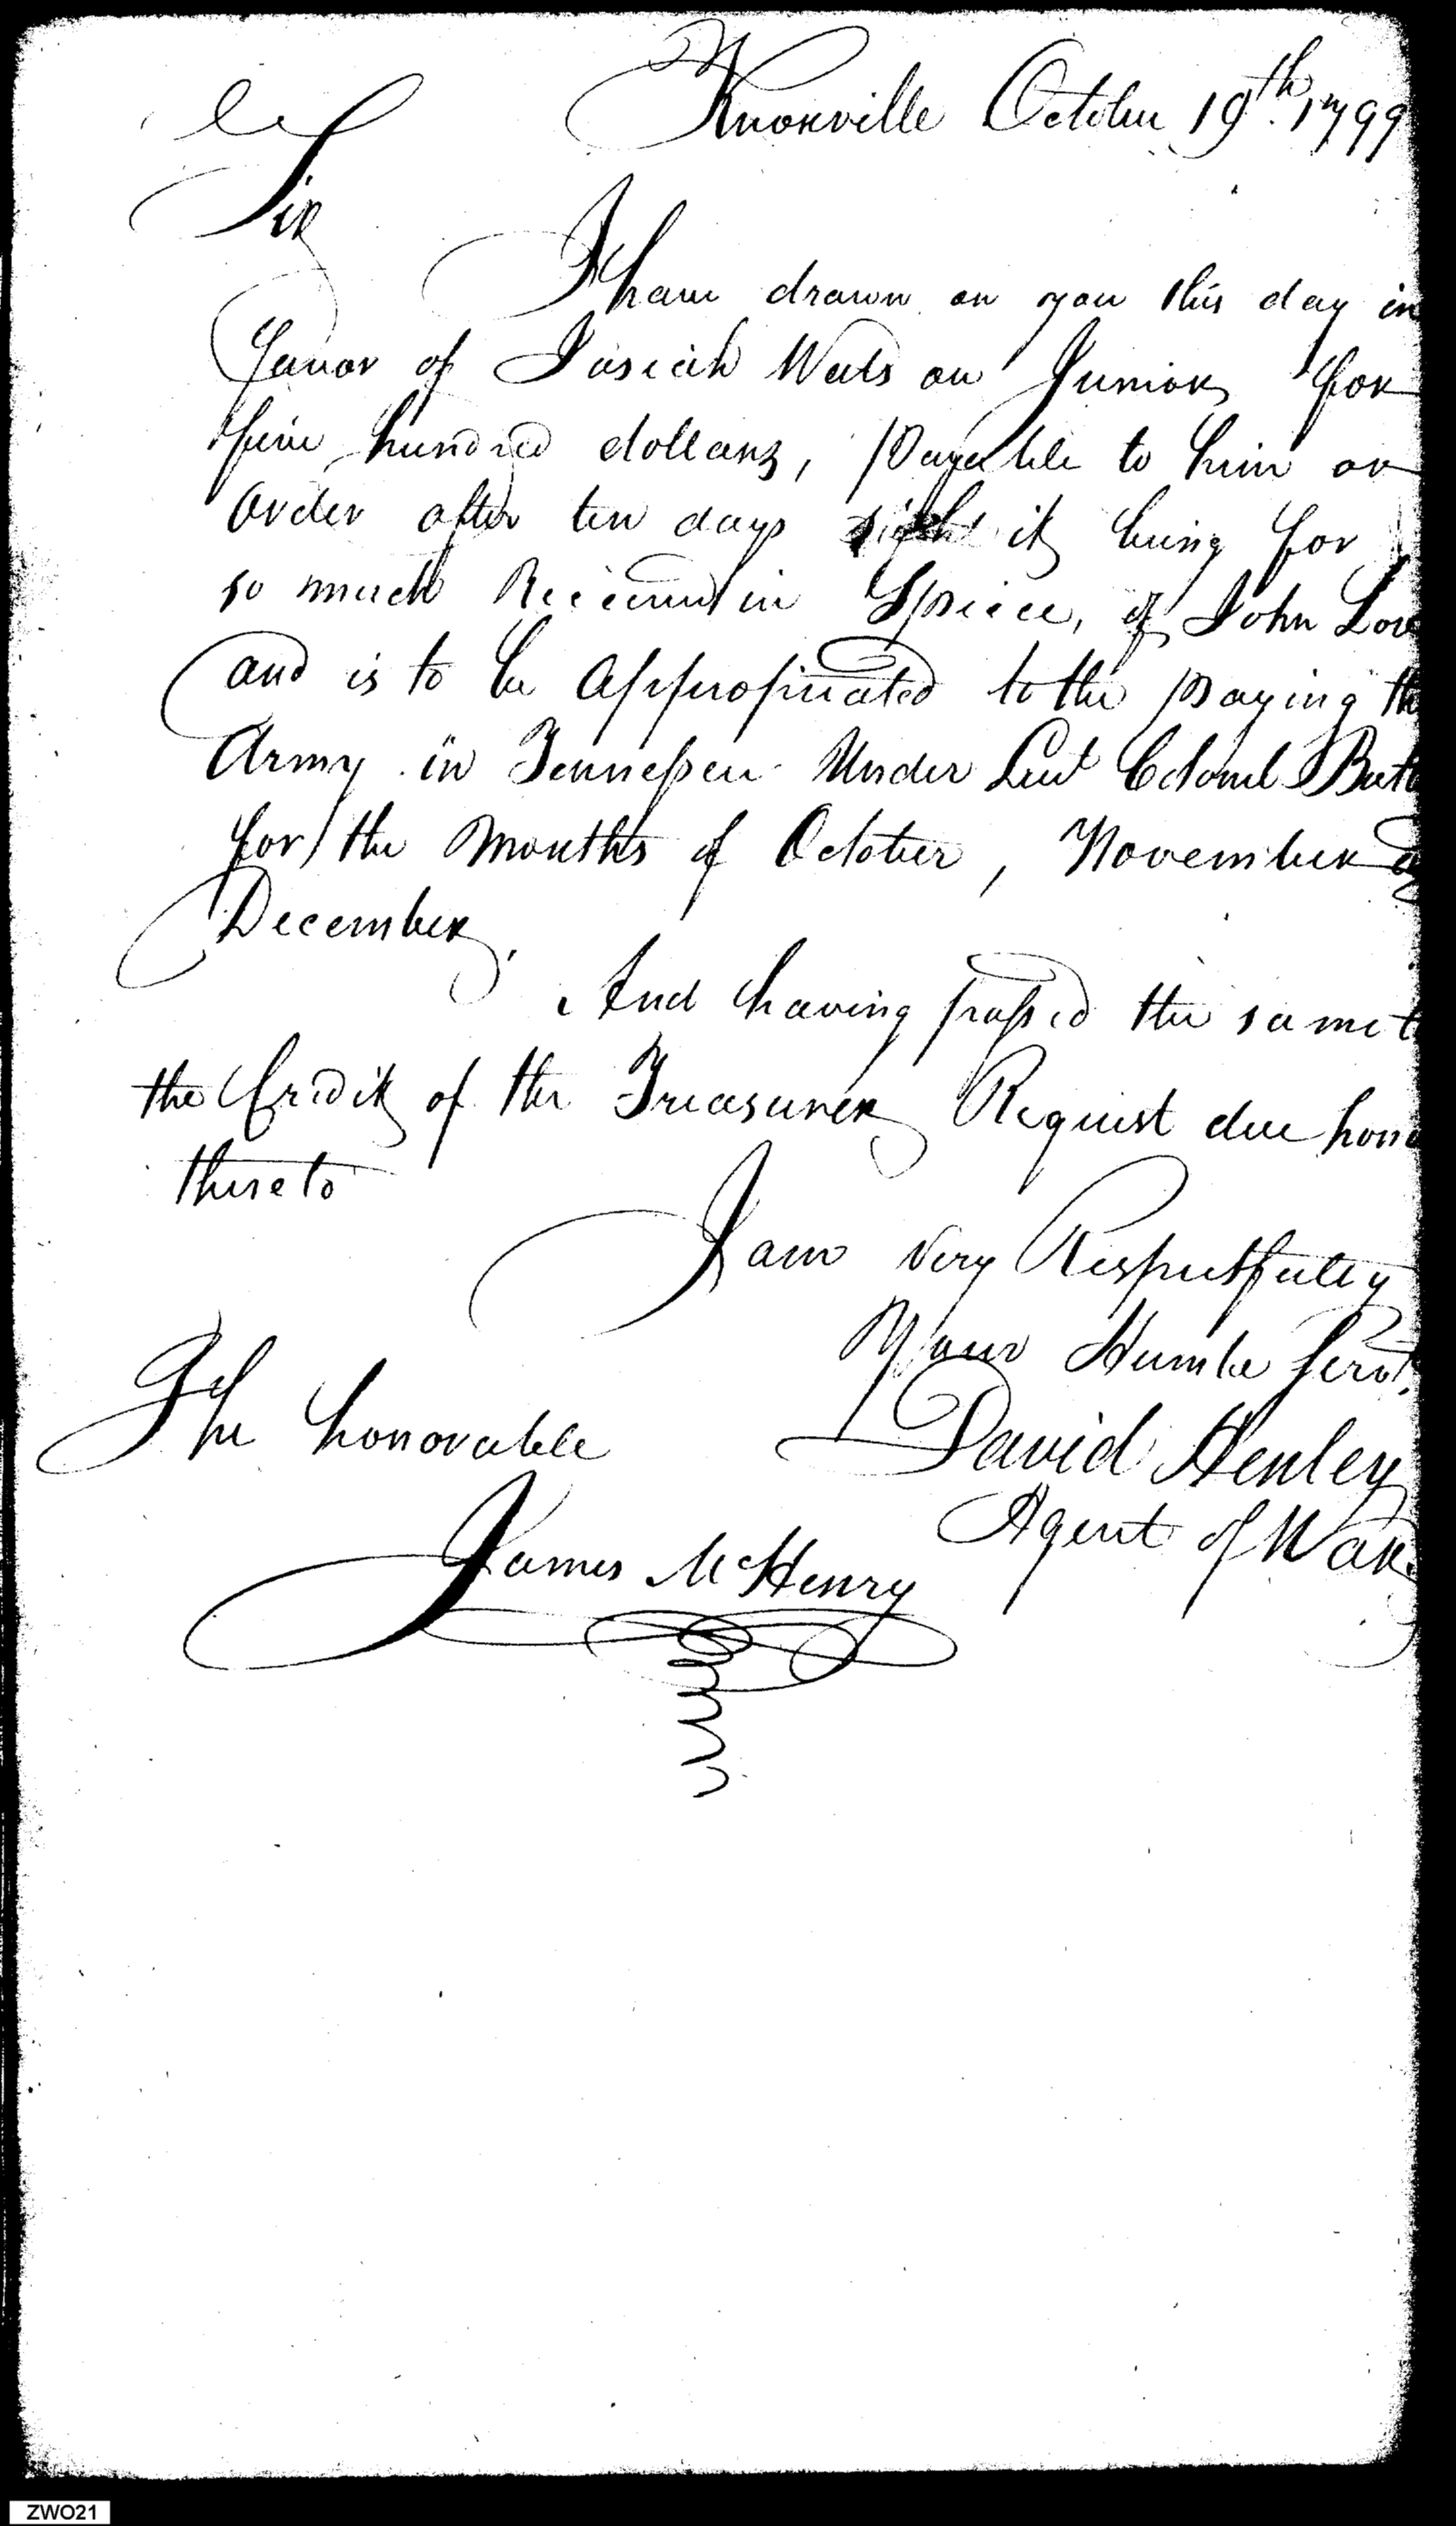 Knoxville October 19th. 1799
Sir
I have drawn on you this day in
favor of Josiah Watson Junior for
five hundred dollars, Payable to him or
order after ten days sight it being for
so much Received in Speice, of John Love
and is to be Appropriated to the paying the
Army in Tennessee Under Leut Colonel But
for the Months of October, November &
December.
And having passed the same t
the Credit of the Treasurer Request due hono
thereto
I am very Respectfully
Your Humble Servt.
David Henley
Agent of War
The honorable
James McHenry
ZWO21